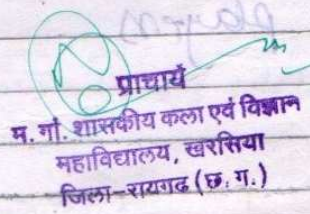 प्राचार्य
म. गाँ. शासकीय कला एवं विज्ञान
महाविद्यालय, खरसिया
जिला-रायगढ (छ. ग.)